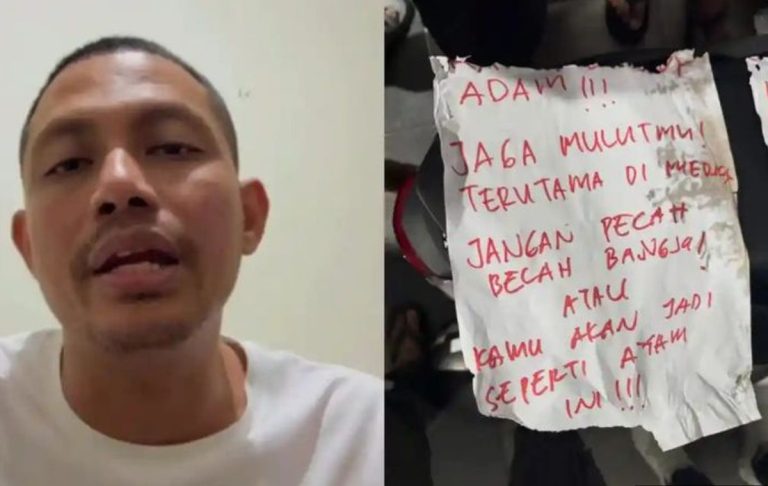 ADAM !!!
JAGA MULUTMU!
TERUTAMA DI MEDIA
JANGAN PECAH
BECAH BANGSA!
ATAU
KAMU AKAN JADI
SEPERTI AYAM
INI!!!